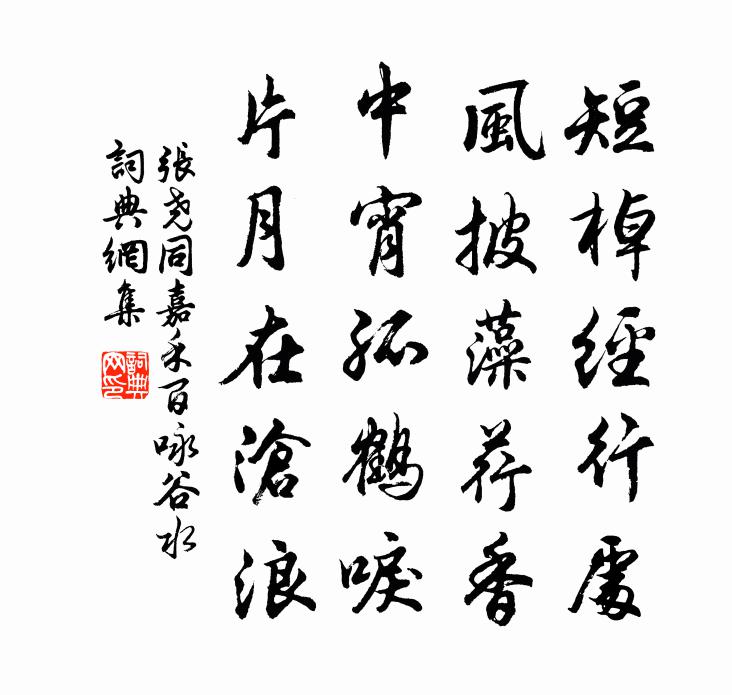 短棹經行處
風披藻荇香
中宵孤鶴唳
片月在滄浪
張尧同嘉禾百咏谷水
詞典網集
詞典網印